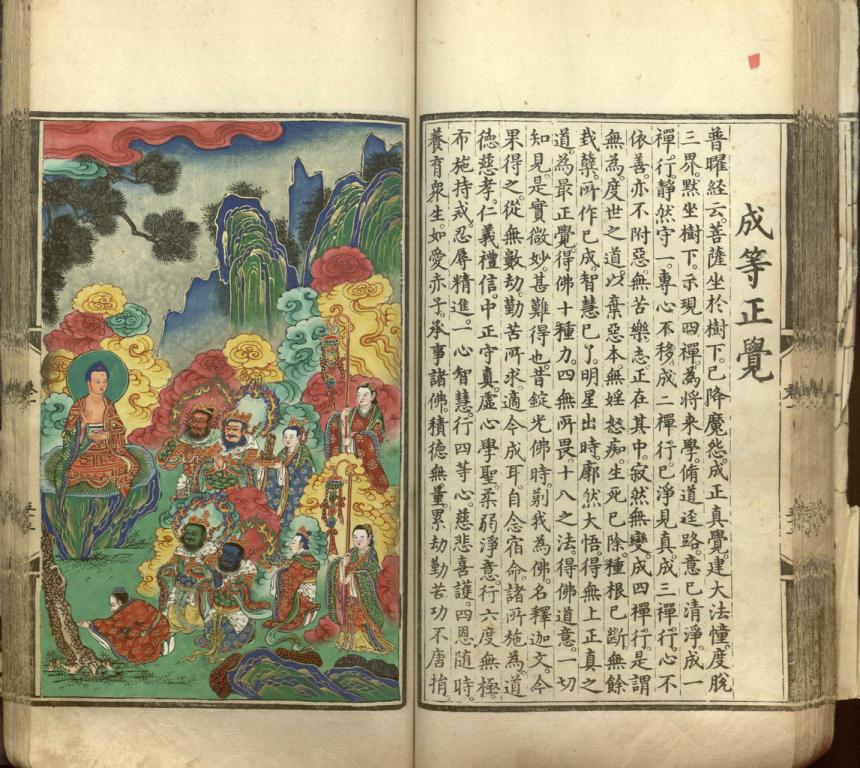 成等正覺
普曜經云。菩薩坐於樹下。已降魔怨。成正真覺。建大法幢。度脫
三界。默坐樹下。示現四禪。為將來學。脩道逕路。意已清淨。成一
禪行。靜然守一。專心不移。成二禪行。已淨見真。成三禪行。心不
依善。亦不附惡。無苦樂志。正在其中。寂然無變。成四禪行。是謂
無為。度世之道。以棄惡本。無婬怒痴。生死已除。種根已斷。無餘
栽櫱。所作已成。智慧已了。明星出時。廓然大悟。得無上正真之
道。為最正覺。得佛十種力。四無所畏。十八之法。得佛道意。一切
知見。是實微妙。甚難得也。昔錠光佛時。莂我為佛。名釋迦文。今
果得之。從無數劫。勤苦所求。適今成耳。自念宿命。諸所施為。道
德慈孝。仁義禮信。中正守真。虛心學聖。柔弱淨意。行六度無極。
布施持戒。忍辱精進。一心智慧。行四等心。慈悲喜護。四恩隨時。
養育衆生。如愛赤子。承事諸佛。積德無量。累劫勤苦。功不唐捐。